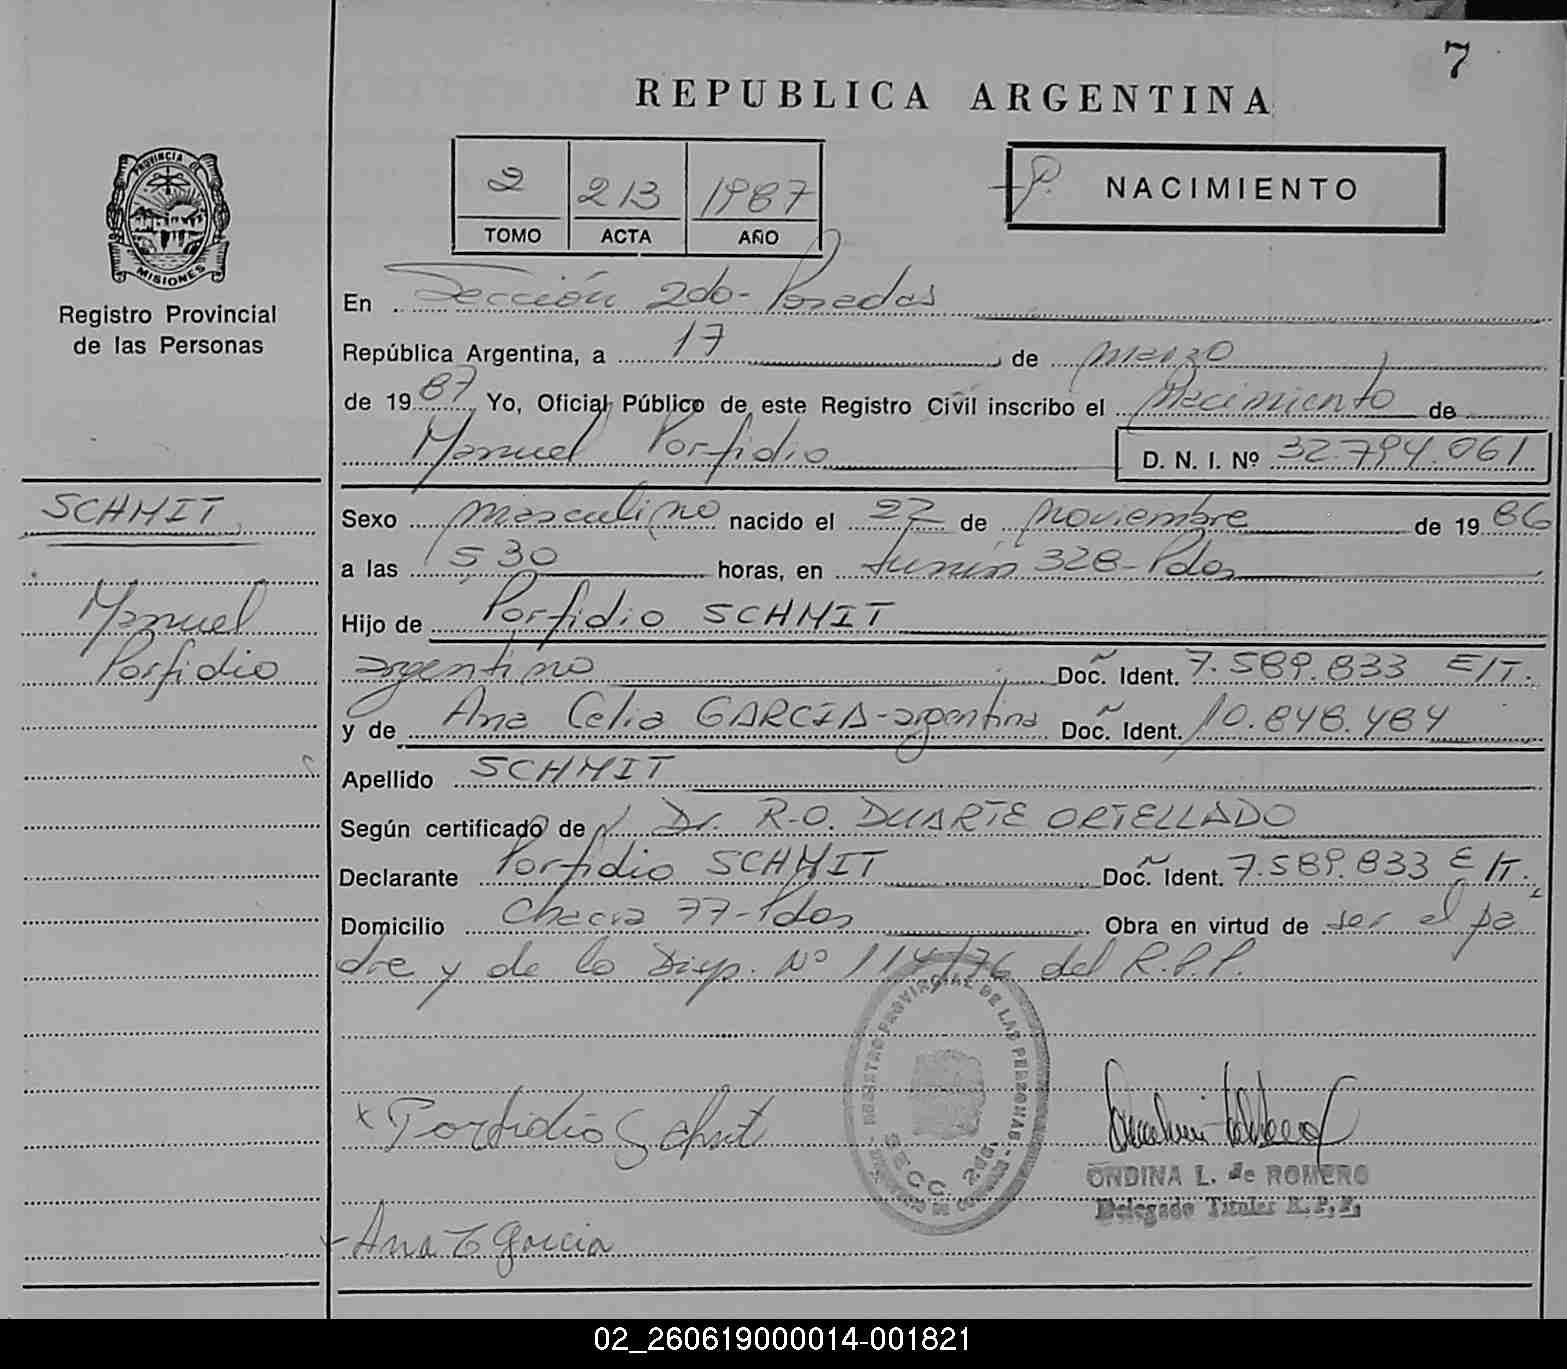 7
REPUBLICA ARGENTINA
PROVINCIA DE
MISIONES
Registro Provincial
de las Personas
2 213 1987
TOMO ACTA AÑO
NACIMIENTO
En Sección 2do- Posadas
República Argentina, a 17 de marzo
de 1987 Yo, Oficial Público de este Registro Civil inscribo el Nacimiento de
Manuel Porfidio
D. N. I. Nº 32.794.061
SCHMIT
Manuel
Porfidio
Sexo masculino nacido el 27 de noviembre de 1986
a las 530 horas, en Junín 328-Pdas
Hijo de Porfidio SCHMIT
argentino Doc. Ident. 7.589.833 E/T.
y de Ana Celia GARCIA-argentina Doc. Ident. 10.848.484
Apellido SCHMIT
Según certificado de Dr. R.O. DUARTE ORTELLADO
Declarante Porfidio SCHMIT Doc. Ident. 7.589.833 E/T.
Domicilio Chacra 77-Pdas Obra en virtud de ser el pa
dre y de la Disp. Nº 114/76 del R.P.P.
REGISTRO PROVINCIAL DE LAS PERSONAS
SECC. 2da.
x Porfidio Schmit
ONDINA L. de ROMERO
Delegado Titular R.P.P.
Ana C Garcia
02_260619000014-001821